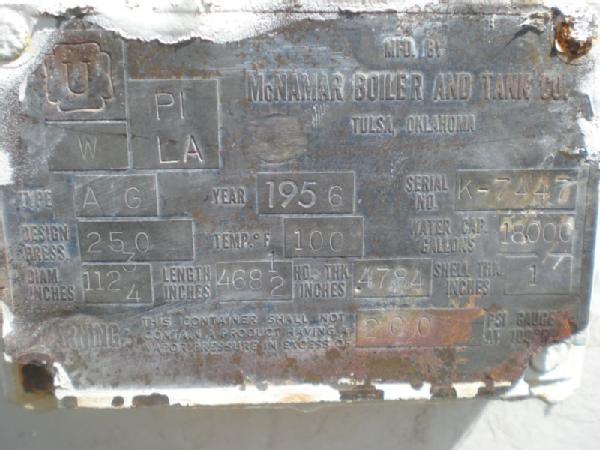 MFG. BY
U
PI
McNAMAR BOILER AND TANK CO.
W
LA
TULSA, OKLAHOMA
TYPE AG YEAR 1956 SERIAL NO. K-7447
DESIGN PRESS. 250 TEMP. °F 100 WATER CAP. GALLONS 18000
DIAM. INCHES 112 3/4 LENGTH INCHES 468 1/2 HD. THK. INCHES .4784 SHELL THK. INCHES 1
WARNING: THIS CONTAINER SHALL NOT
CONTAIN A PRODUCT HAVING A 200 PSI GAUGE
VAPOR PRESSURE IN EXCESS OF AT